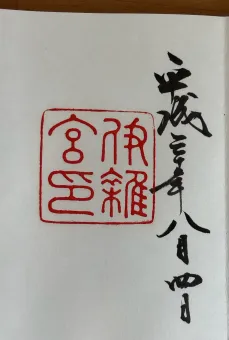 平成三十年八月四日
伊雜
宮印